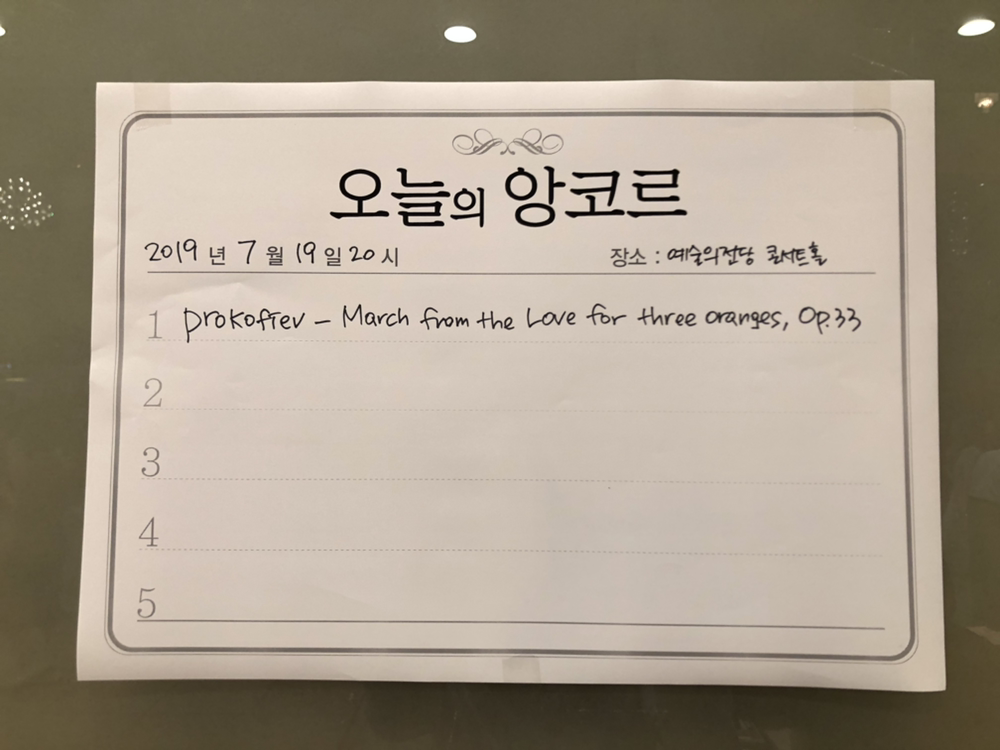 오늘의 앙코르
2019 년 7 월 19 일 20 시 장소 : 예술의전당 콘서트홀
1 Prokofiev – March from the Love for three oranges, Op.33
2
3
4
5